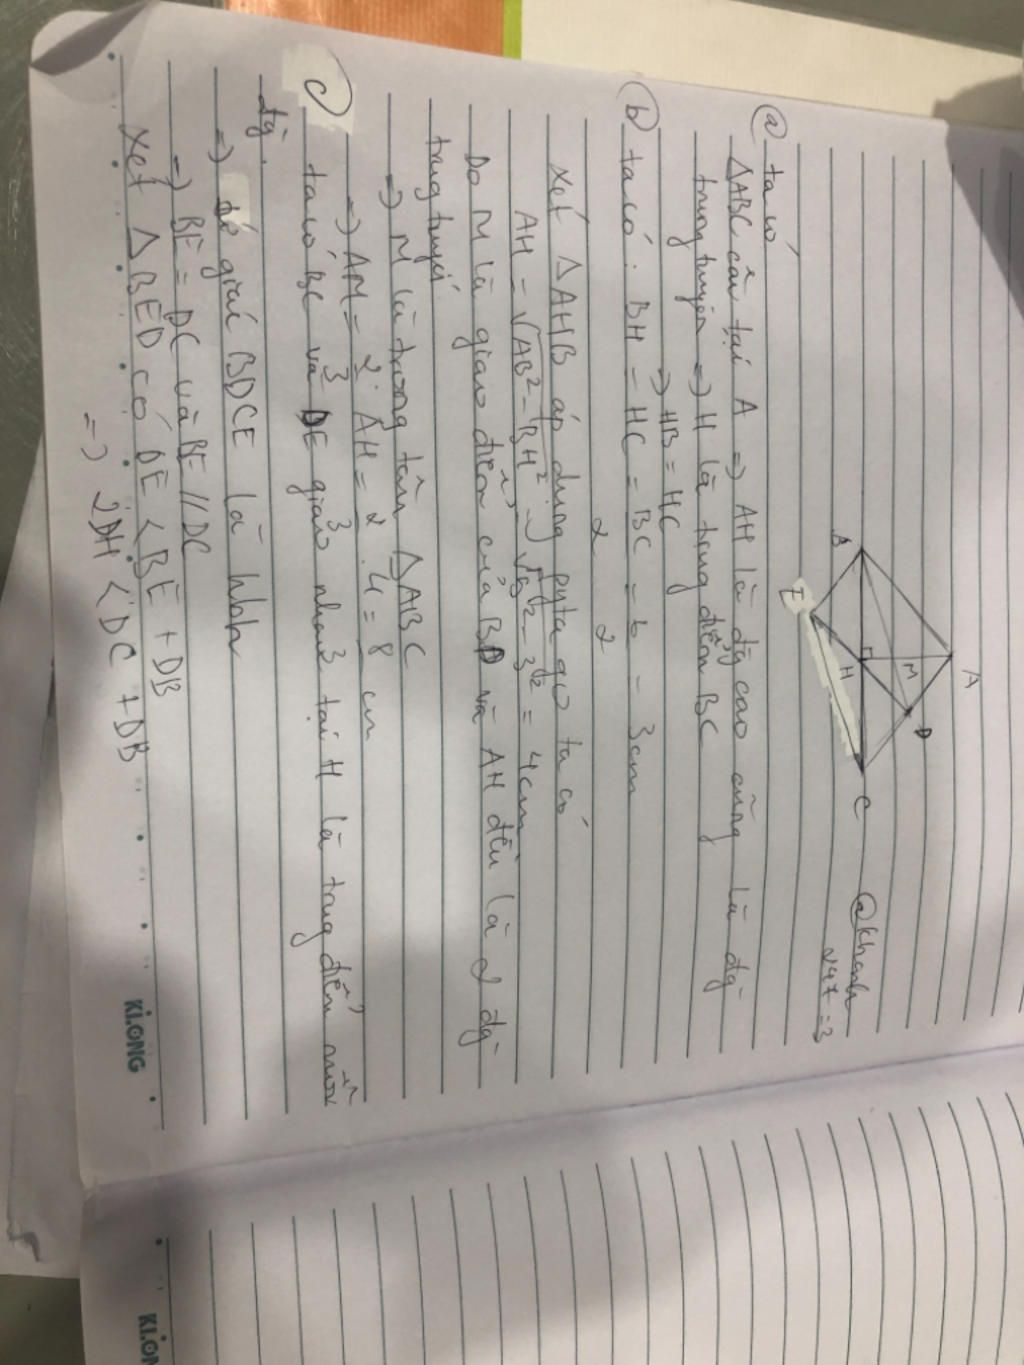 A
D
M
B
H
C
E
@khanh
247=3
a) ta có
ΔABC cân tại A => AH là đg cao cũng là đg-
trung tuyến => H là trung điểm BC
=> HB = HC
b) ta có : BH = HC = BC = 6 = 3cm
2 2
xét ΔAHB áp dụng pytago ta có
AH = √AB² - BH² = √5² - 3² = 4cm
Do M là giao điểm của BD và AH đều là 2 đg-
trung tuyến
=> M là trọng tâm ΔABC
=> AM = 2 . AH = 2 . 4 = 8 cm
3 3
c) ta có BC và DE giao nhau tại H là trung điểm mỗi
đg-.
=> tứ giác BDCE là hbh
=> BE = DC và BE // DC
xét ΔBED có DE < BE + DB
=> 2DH < DC + DB
KI.ONG
KI.ON